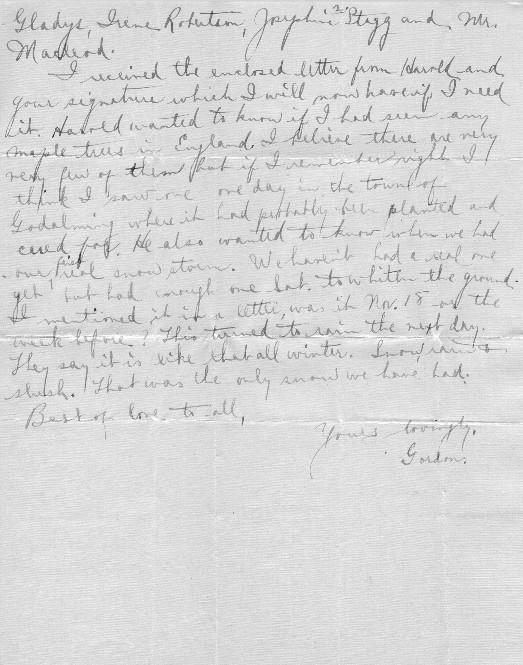 Gladys, Irene Robertson, Josephine Stegg and Mr.
Macleod.
I received the enclosed letter from Harold and
your signature which I will now have if I need
it. Harold wanted to know if I had seen any
maple trees in England. I believe there are very
very few of them but if I remember right I
think I saw one one day in the town of
Godalming where it had probably been planted and
cared for. He also wanted to know when we had
our first real snow storm. We haven't had a real one
yet but had enough one Sat. to whiten the ground.
I mentioned it in a letter, was it Nov. 18 or the
week before? This turned to rain the next day.
They say it is like that all winter. Snow rain &
slush. That was the only snow we have had.
Best of love to all,
Yours lovingly,
Gordon.